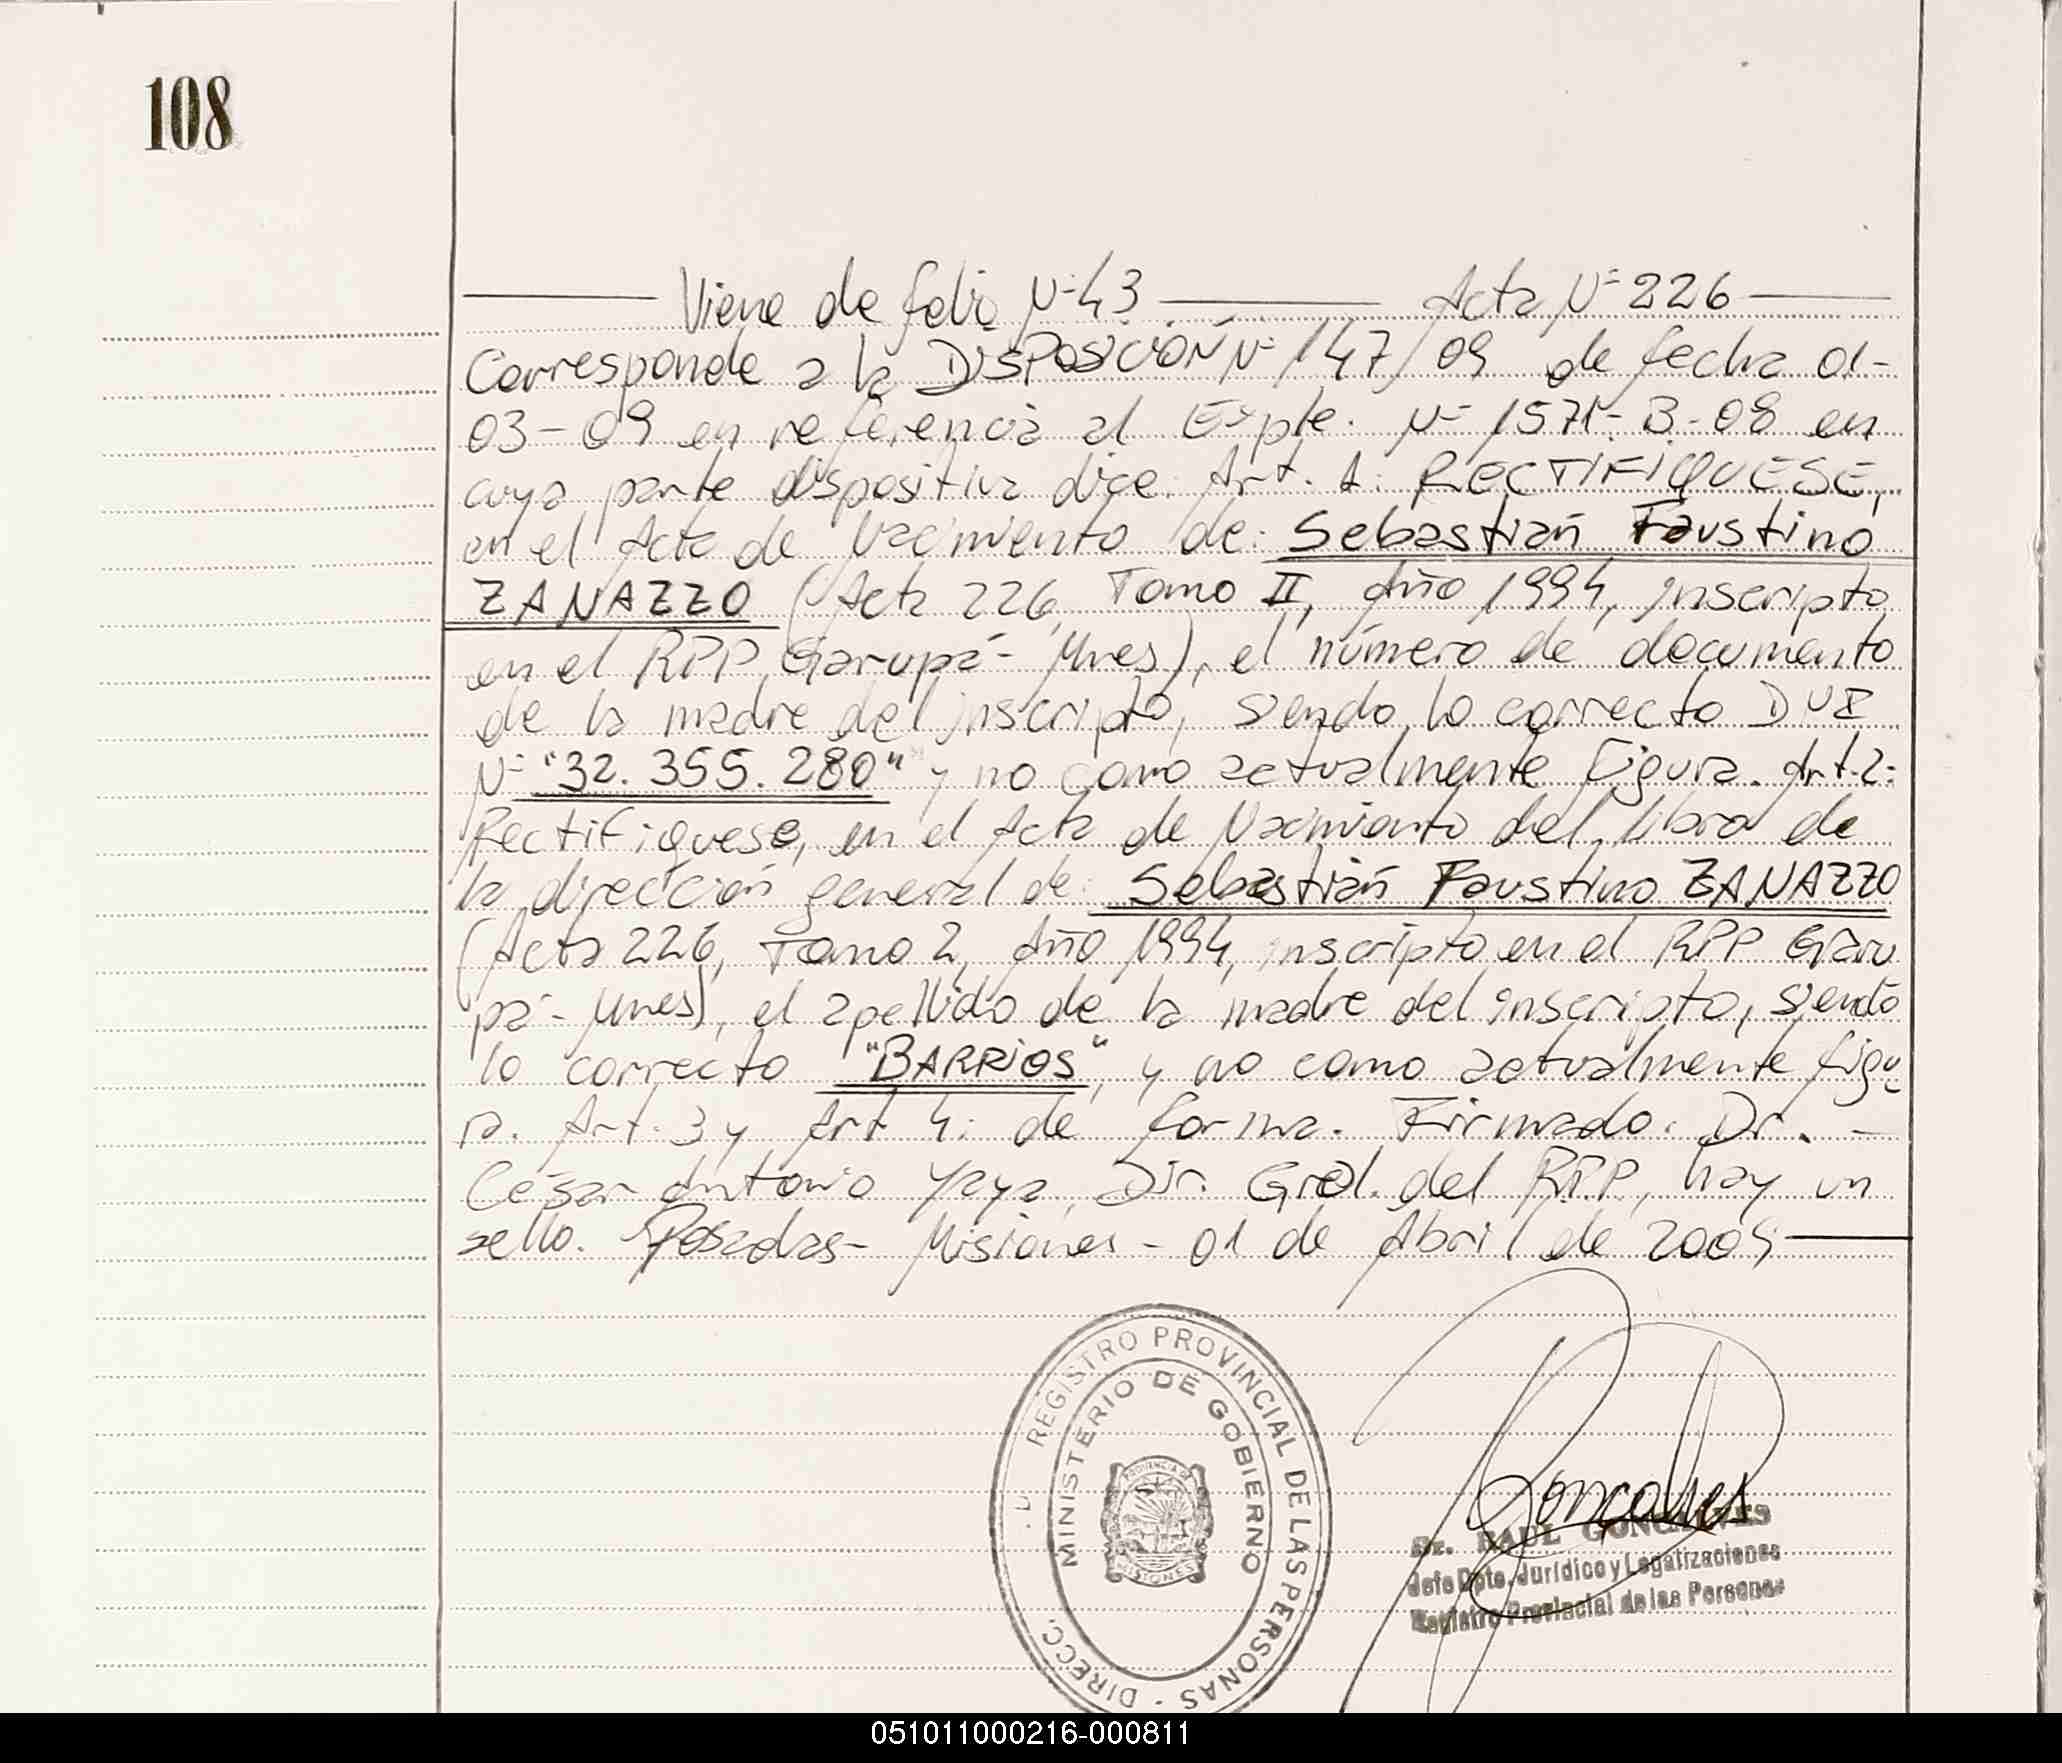 108
Viene de folio Nº 43 Acta Nº 226
Corresponde a la DISPOSICIÓN Nº 147/09 de fecha 01-
03-09 en referencia al Expte. Nº 1571-B-08 en
cuya parte dispositiva dice: Art. 1: RECTIFIQUESE,
en el Acta de Nacimiento de: Sebastián Faustino
ZANAZZO (Acta 226, Tomo II, Año 1994, inscripto
en el RPP Garupá- Mnes), el número de documento
de la madre del inscripto, siendo lo correcto DNI
Nº "32.355.280" y no como actualmente figura. Art. 2:
Rectifiquese, en el Acta de Nacimiento del libro de
la dirección general de: Sebastián Faustino ZANAZZO
(Acta 226, Tomo 2, Año 1994, inscripto en el RPP Garu
pá- Mnes), el apellido de la madre del inscripto, siendo
lo correcto "BARRIOS", y no como actualmente figu-
ra. Art. 3 y Art 4: de forma. Firmado: Dr. -
César Antonio Yaya, Dir. Gral. del RPP, hay un
sello. Posadas- Misiones - 01 de Abril de 2009
REGISTRO PROVINCIAL DE LAS PERSONAS - DIRECC.
MINISTERIO DE GOBIERNO
PROVINCIA DE
MISIONES
Goncalves
Dr. RAUL GONCALVES
Jefe Dpto. Jurídico y Legalizaciones
Registro Provincial de las Personas
051011000216-000811